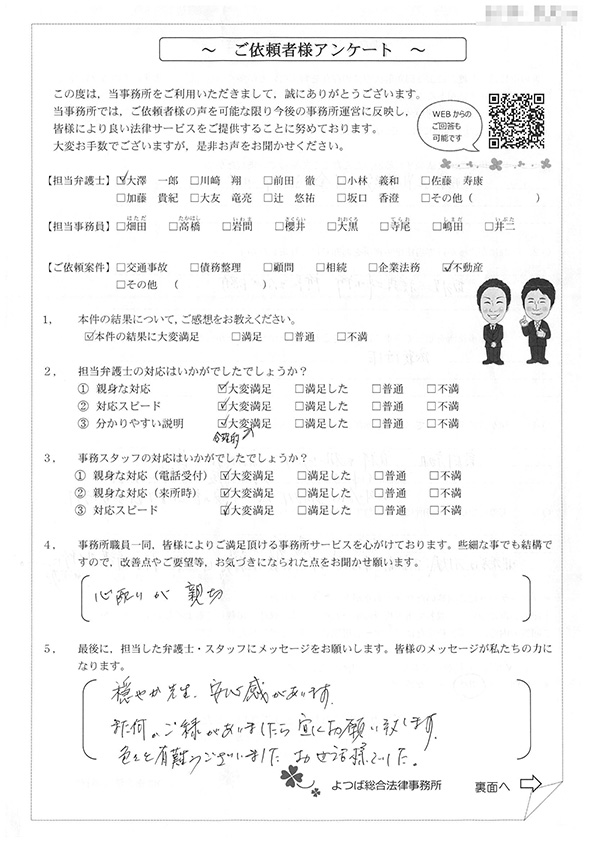 ～ ご依頼者様アンケート ～
この度は，当事務所をご利用いただきまして，誠にありがとうございます。
当事務所では，ご依頼者様の声を可能な限り今後の事務所運営に反映し，
皆様により良い法律サービスをご提供することに努めております。
大変お手数でございますが，是非お声をお聞かせください。
WEBからの
ご回答も
可能です
【担当弁護士】☑大澤 一郎 □川﨑 翔 □前田 徹 □小林 義和 □佐藤 寿康
□加藤 貴紀 □大友 竜亮 □辻 悠祐 □坂口 香澄 □その他（ ）
【担当事務員】□畑田 □高橋 □岩間 □櫻井 □大黒 □寺尾 □嶋田 □井二
【ご依頼案件】□交通事故 □債務整理 □顧問 □相続 □企業法務 ☑不動産
□その他 （ ）
1． 本件の結果について，ご感想をお教えください。
☑本件の結果に大変満足 □満足 □普通 □不満
2． 担当弁護士の対応はいかがでしたでしょうか？
① 親身な対応 ☑大変満足 □満足した □普通 □不満
② 対応スピード ☑大変満足 □満足した □普通 □不満
③ 分かりやすい説明 ☑大変満足 □満足した □普通 □不満
3． 事務スタッフの対応はいかがでしたでしょうか？
① 親身な対応（電話受付） ☑大変満足 □満足した □普通 □不満
② 親身な対応（来所時） ☑大変満足 □満足した □普通 □不満
③ 対応スピード ☑大変満足 □満足した □普通 □不満
4． 事務所職員一同，皆様によりご満足頂ける事務所サービスを心がけております。些細な事でも結構で
すので，改善点やご要望等，お気づきになられた点をお聞かせ願います。
心配りが 親切
5． 最後に，担当した弁護士・スタッフにメッセージをお願いします。皆様のメッセージが私たちの力に
なります。
穏やか先生、安心感があります。
また何かご縁がありましたら宜しくお願い致します。
色々と有難うございました お世話様でした。
よつば総合法律事務所
裏面へ